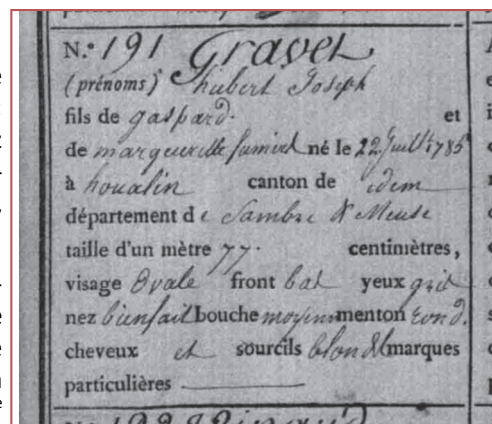 N.° 191 Gravet
(prénoms) hubert Joseph
fils de gaspard. et
de margueritte né le 22 Juill. 1785
à houalin canton de idem
département de Sambre & Meuse
taille d'un mètre 77. centimètres,
visage Ovale front bas yeux gris
nez bienfait bouche moyenne menton rond.
cheveux et sourcils blonds marques
particulières